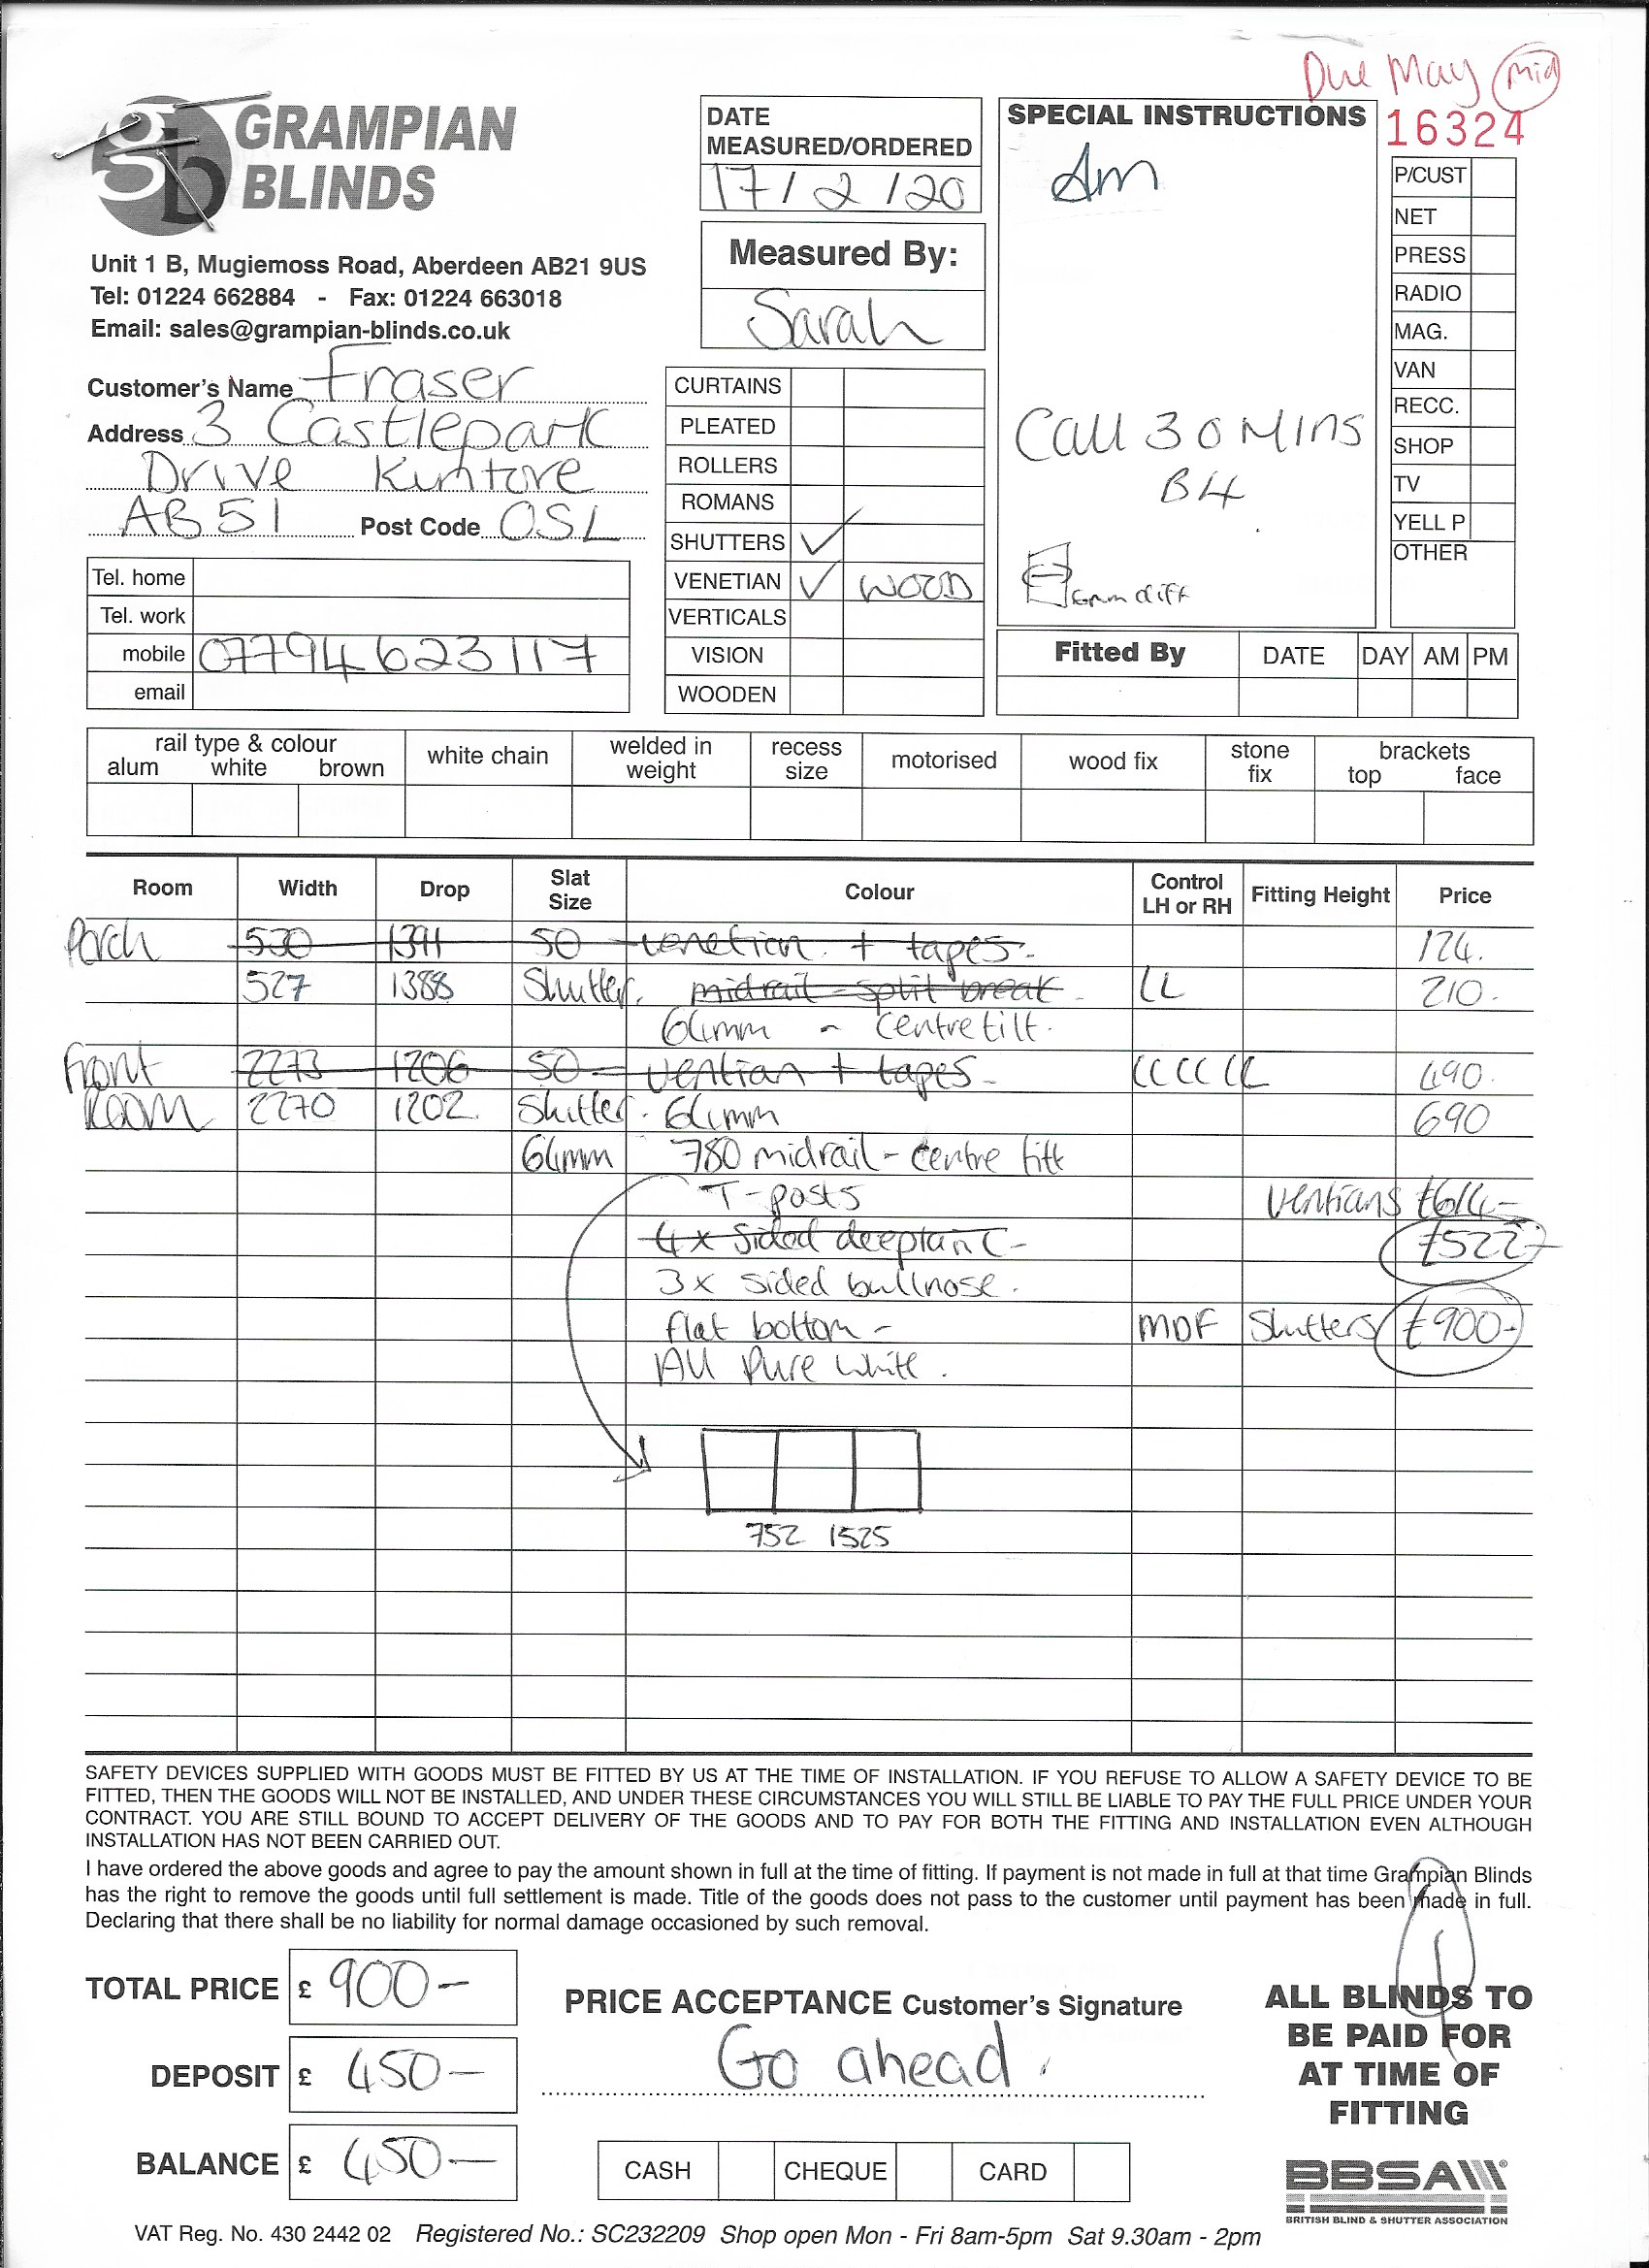 Due May mid
GRAMPIAN
BLINDS
Unit 1 B, Mugiemoss Road, Aberdeen AB21 9US
Tel: 01224 662884 - Fax: 01224 663018
Email: sales@grampian-blinds.co.uk
Customer's Name Fraser
Address 3 Castlepark
Drive Kintore
AB51 Post Code 0SL
Tel. home
Tel. work
mobile 07794623117
email
DATE
MEASURED/ORDERED
17/2/20
Measured By:
Sarah
CURTAINS
PLEATED
ROLLERS
ROMANS
SHUTTERS ✓
VENETIAN ✓ WOOD
VERTICALS
VISION
WOODEN
SPECIAL INSTRUCTIONS
Am
Call 30 Mins
B4
6mm diff
16324
P/CUST
NET
PRESS
RADIO
MAG.
VAN
RECC.
SHOP
TV
YELL P
OTHER
Fitted By DATE DAY AM PM
rail type & colour
alum white brown
white chain
welded in
weight
recess
size
motorised
wood fix
stone
fix
brackets
top face
Room Width Drop Slat Size Colour Control LH or RH Fitting Height Price
Porch 530 1391 50 venetian + tapes- 124.
527 1388 Shutter. midrail - split break - LL 210-
64mm - centre tilt.
Front 2273 1206 50- ventian + tapes- 490.
Room 2270 1202 Shutter. 64mm 690
64mm 780 midrail - centre tilt
T-posts ventians £614-
4x Sided £522-
3x sided bullnose.
flat bottom - MDF Shutters £900-
All Pure White.
752 1525
SAFETY DEVICES SUPPLIED WITH GOODS MUST BE FITTED BY US AT THE TIME OF INSTALLATION. IF YOU REFUSE TO ALLOW A SAFETY DEVICE TO BE
FITTED, THEN THE GOODS WILL NOT BE INSTALLED, AND UNDER THESE CIRCUMSTANCES YOU WILL STILL BE LIABLE TO PAY THE FULL PRICE UNDER YOUR
CONTRACT. YOU ARE STILL BOUND TO ACCEPT DELIVERY OF THE GOODS AND TO PAY FOR BOTH THE FITTING AND INSTALLATION EVEN ALTHOUGH
INSTALLATION HAS NOT BEEN CARRIED OUT.
I have ordered the above goods and agree to pay the amount shown in full at the time of fitting. If payment is not made in full at that time Grampian Blinds
has the right to remove the goods until full settlement is made. Title of the goods does not pass to the customer until payment has been made in full.
Declaring that there shall be no liability for normal damage occasioned by such removal.
TOTAL PRICE £ 900-
DEPOSIT £ 450-
BALANCE £ 450-
PRICE ACCEPTANCE Customer's Signature
Go ahead.
CASH CHEQUE CARD
ALL BLINDS TO
BE PAID FOR
AT TIME OF
FITTING
BBSA
BRITISH BLIND & SHUTTER ASSOCIATION
VAT Reg. No. 430 2442 02 Registered No.: SC232209 Shop open Mon - Fri 8am-5pm Sat 9.30am - 2pm